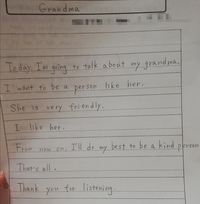 Grandma
Today, I'm going to talk about my grandma.
I want to be a person like her.
She is very friendly.
I like her.
From now on, I'll do my best to be a kind person
That's all.
Thank you for listening.